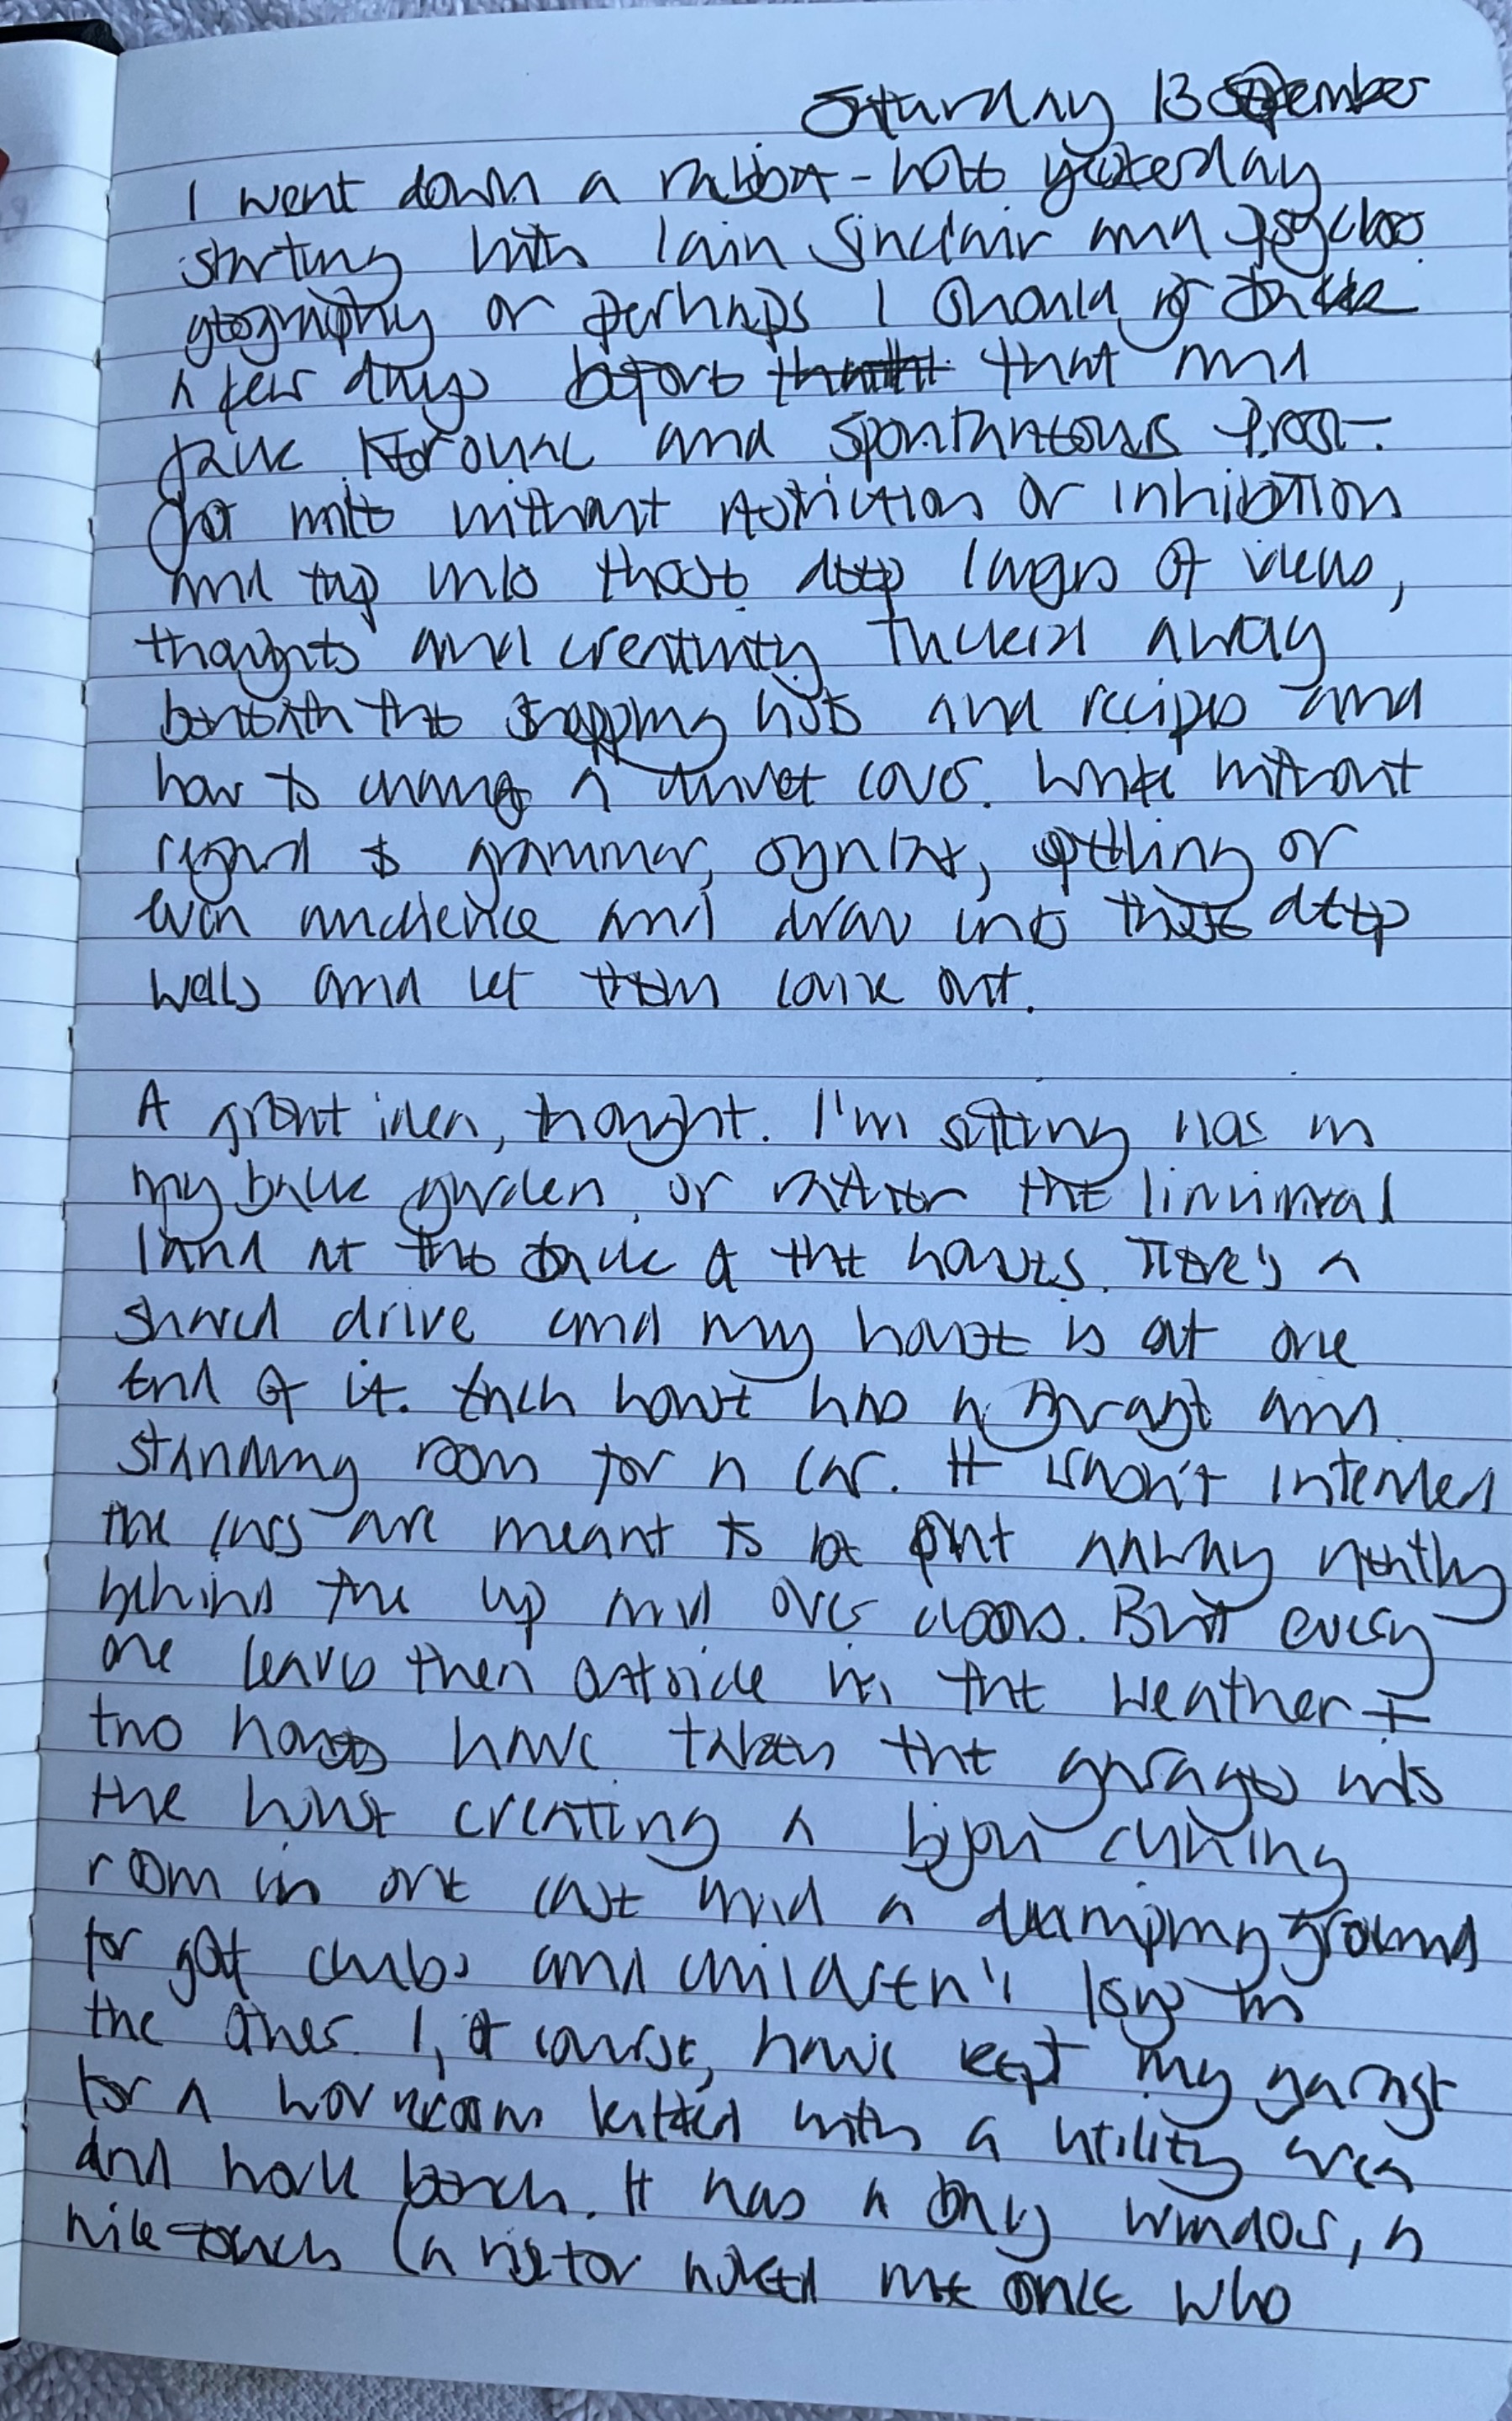 Saturday 13 September
I went down a rabbit-hole yesterday
starting with Iain Sinclair and psycho
geography or perhaps I should go back
a few days before that and
Jack Kerouac and Spontaneous Prose.
Just write without restriction or inhibition
and tap into those deep layers of views,
thoughts and creativity tucked away
beneath the shopping lists and recipes and
how to change a duvet cover. Write without
regard to grammar, syntax, spelling or
even audience and draw into those deep
wells and let them come out.
A great idea, thought. I'm sitting here in
my back garden, or rather the liminal
land at the back of the houses. There's a
shared drive and my house is at one
end of it. Each house has a garage and
standing room for a car. It wasn't intended
the cars are meant to be put away neatly
behind the up and over doors. But every
one leaves them outside in the weather +
two houses have taken the garages into
the house creating a bijou dining
room in one case and a dumping ground
for golf clubs and children's toys in
the other. I, of course, have kept my garage
for a workroom kitted with a utility area
and work bench. It has a bay window, a
nice touch (a visitor asked me once who